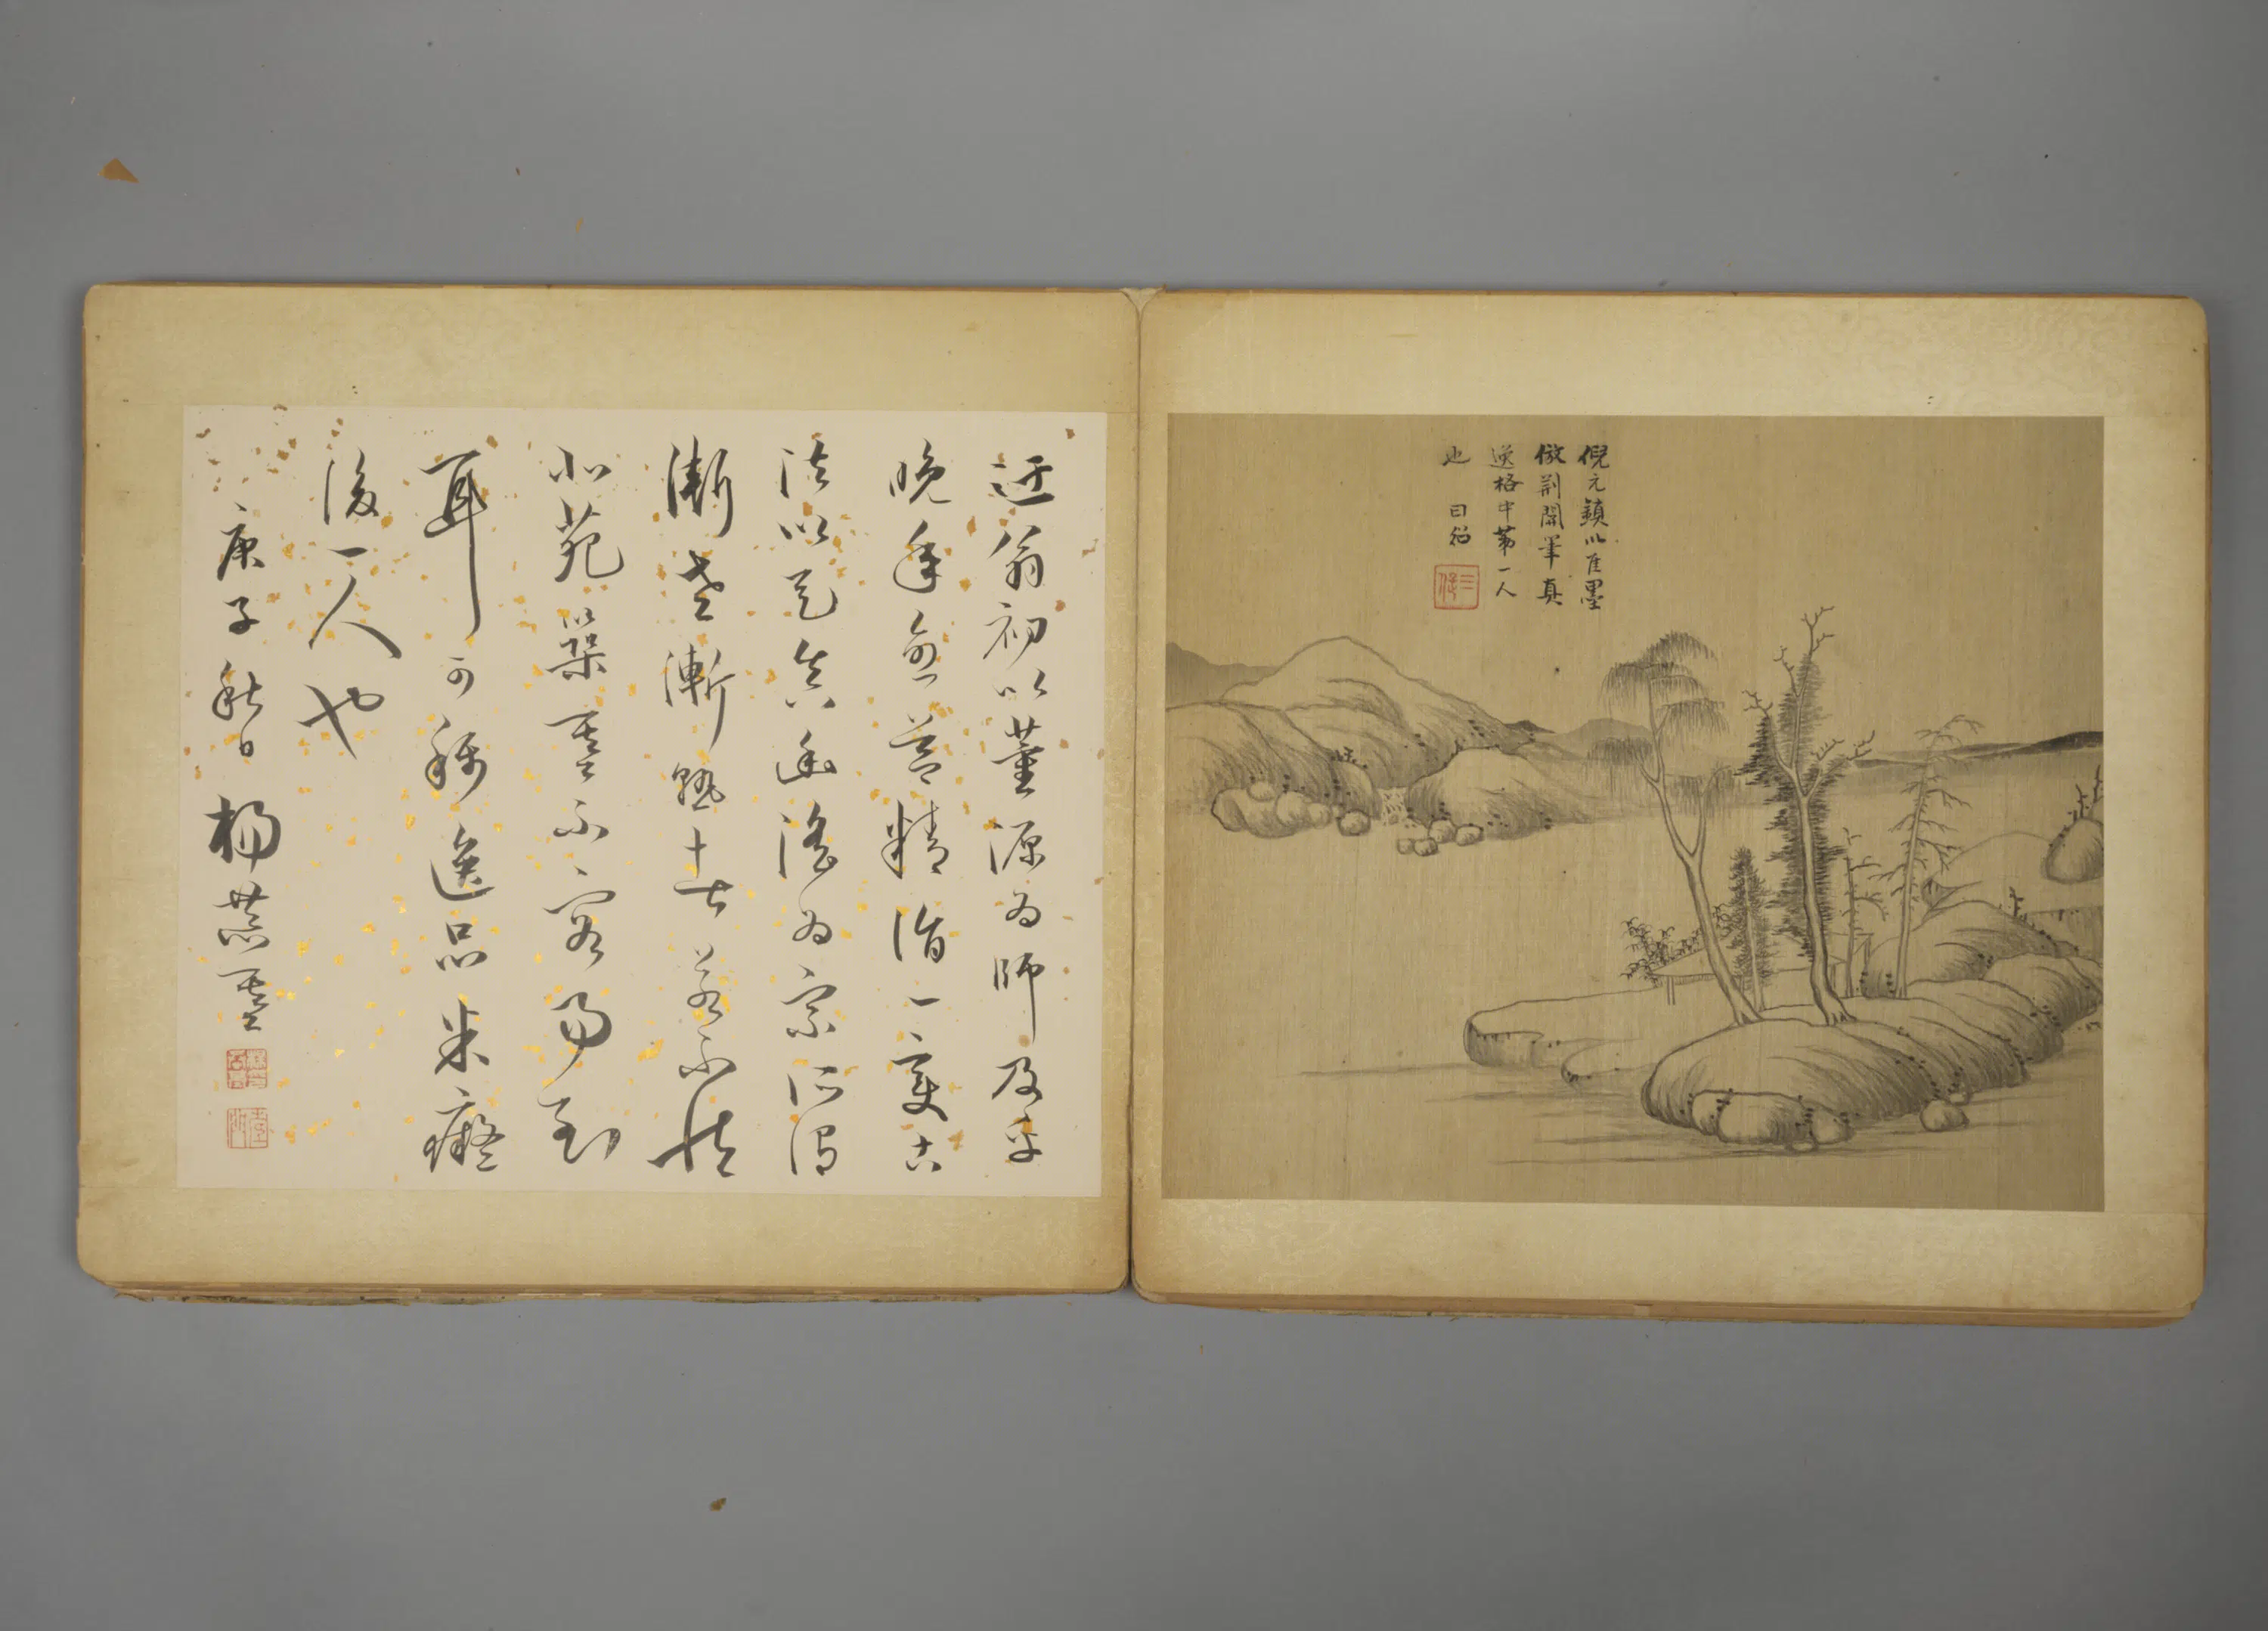 倪元鎮以隹墨
倣荊關筆真
逸格中第一人
也 日
迂翁初以董源為師及乎
晚年愈益精詣一變古
法以天真幽淡為宗所謂
漸老漸熟者若不從
北苑築基不容易到
耳可稱逸品米癡
後一人也
庚子秋日楊